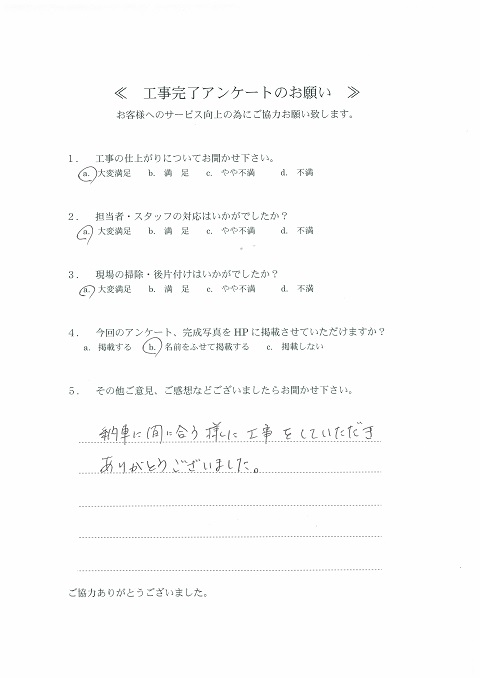 ≪ 工事完了アンケートのお願い ≫
お客様へのサービス向上の為にご協力お願い致します。
1. 工事の仕上がりについてお聞かせ下さい。
a. 大変満足 b. 満 足 c. やや不満 d. 不満
2. 担当者・スタッフの対応はいかがでしたか?
a. 大変満足 b. 満 足 c. やや不満 d. 不満
3. 現場の掃除・後片付けはいかがでしたか?
a. 大変満足 b. 満 足 c. やや不満 d. 不満
4. 今回のアンケート、完成写真を HP に掲載させていただけますか?
a. 掲載する b. 名前をふせて掲載する c. 掲載しない
5. その他ご意見、ご感想などございましたらお聞かせ下さい。
納車に間に合う様に工事をしていただき
ありがとうございました。
ご協力ありがとうございました。